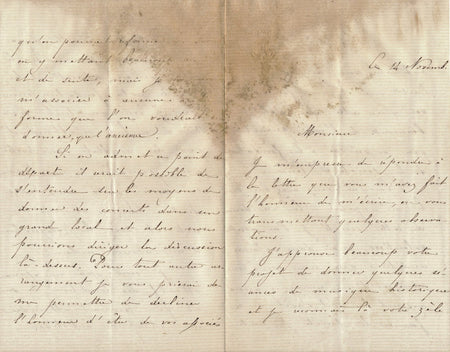 qu'on
en y mettant beaucoup
et de suite, mais je
m'associer à aucune
forme que l'on voudrait
donner, que l'ancienne.
Si on admet ce point de
départ il serait possible de
s'entendre sur les moyens de
donner des concerts dans un
grand local et alors nous
pourrions diriger la discussion
là-dessus. Dans tout autre ar
rangement je vous prierai de
me permettre de décliner
l'honneur d'être de vos associés
Ce 14 Novemb
Monsieur
Je m'empresse de répondre à
la lettre que vous m'avez fait
l'honneur de m'écrire, en vous
transmettant quelques observa
tions.
J'approuve beaucoup votre
projet de donner quelques sé
ances de musique historique
et je reconnais là votre zèle